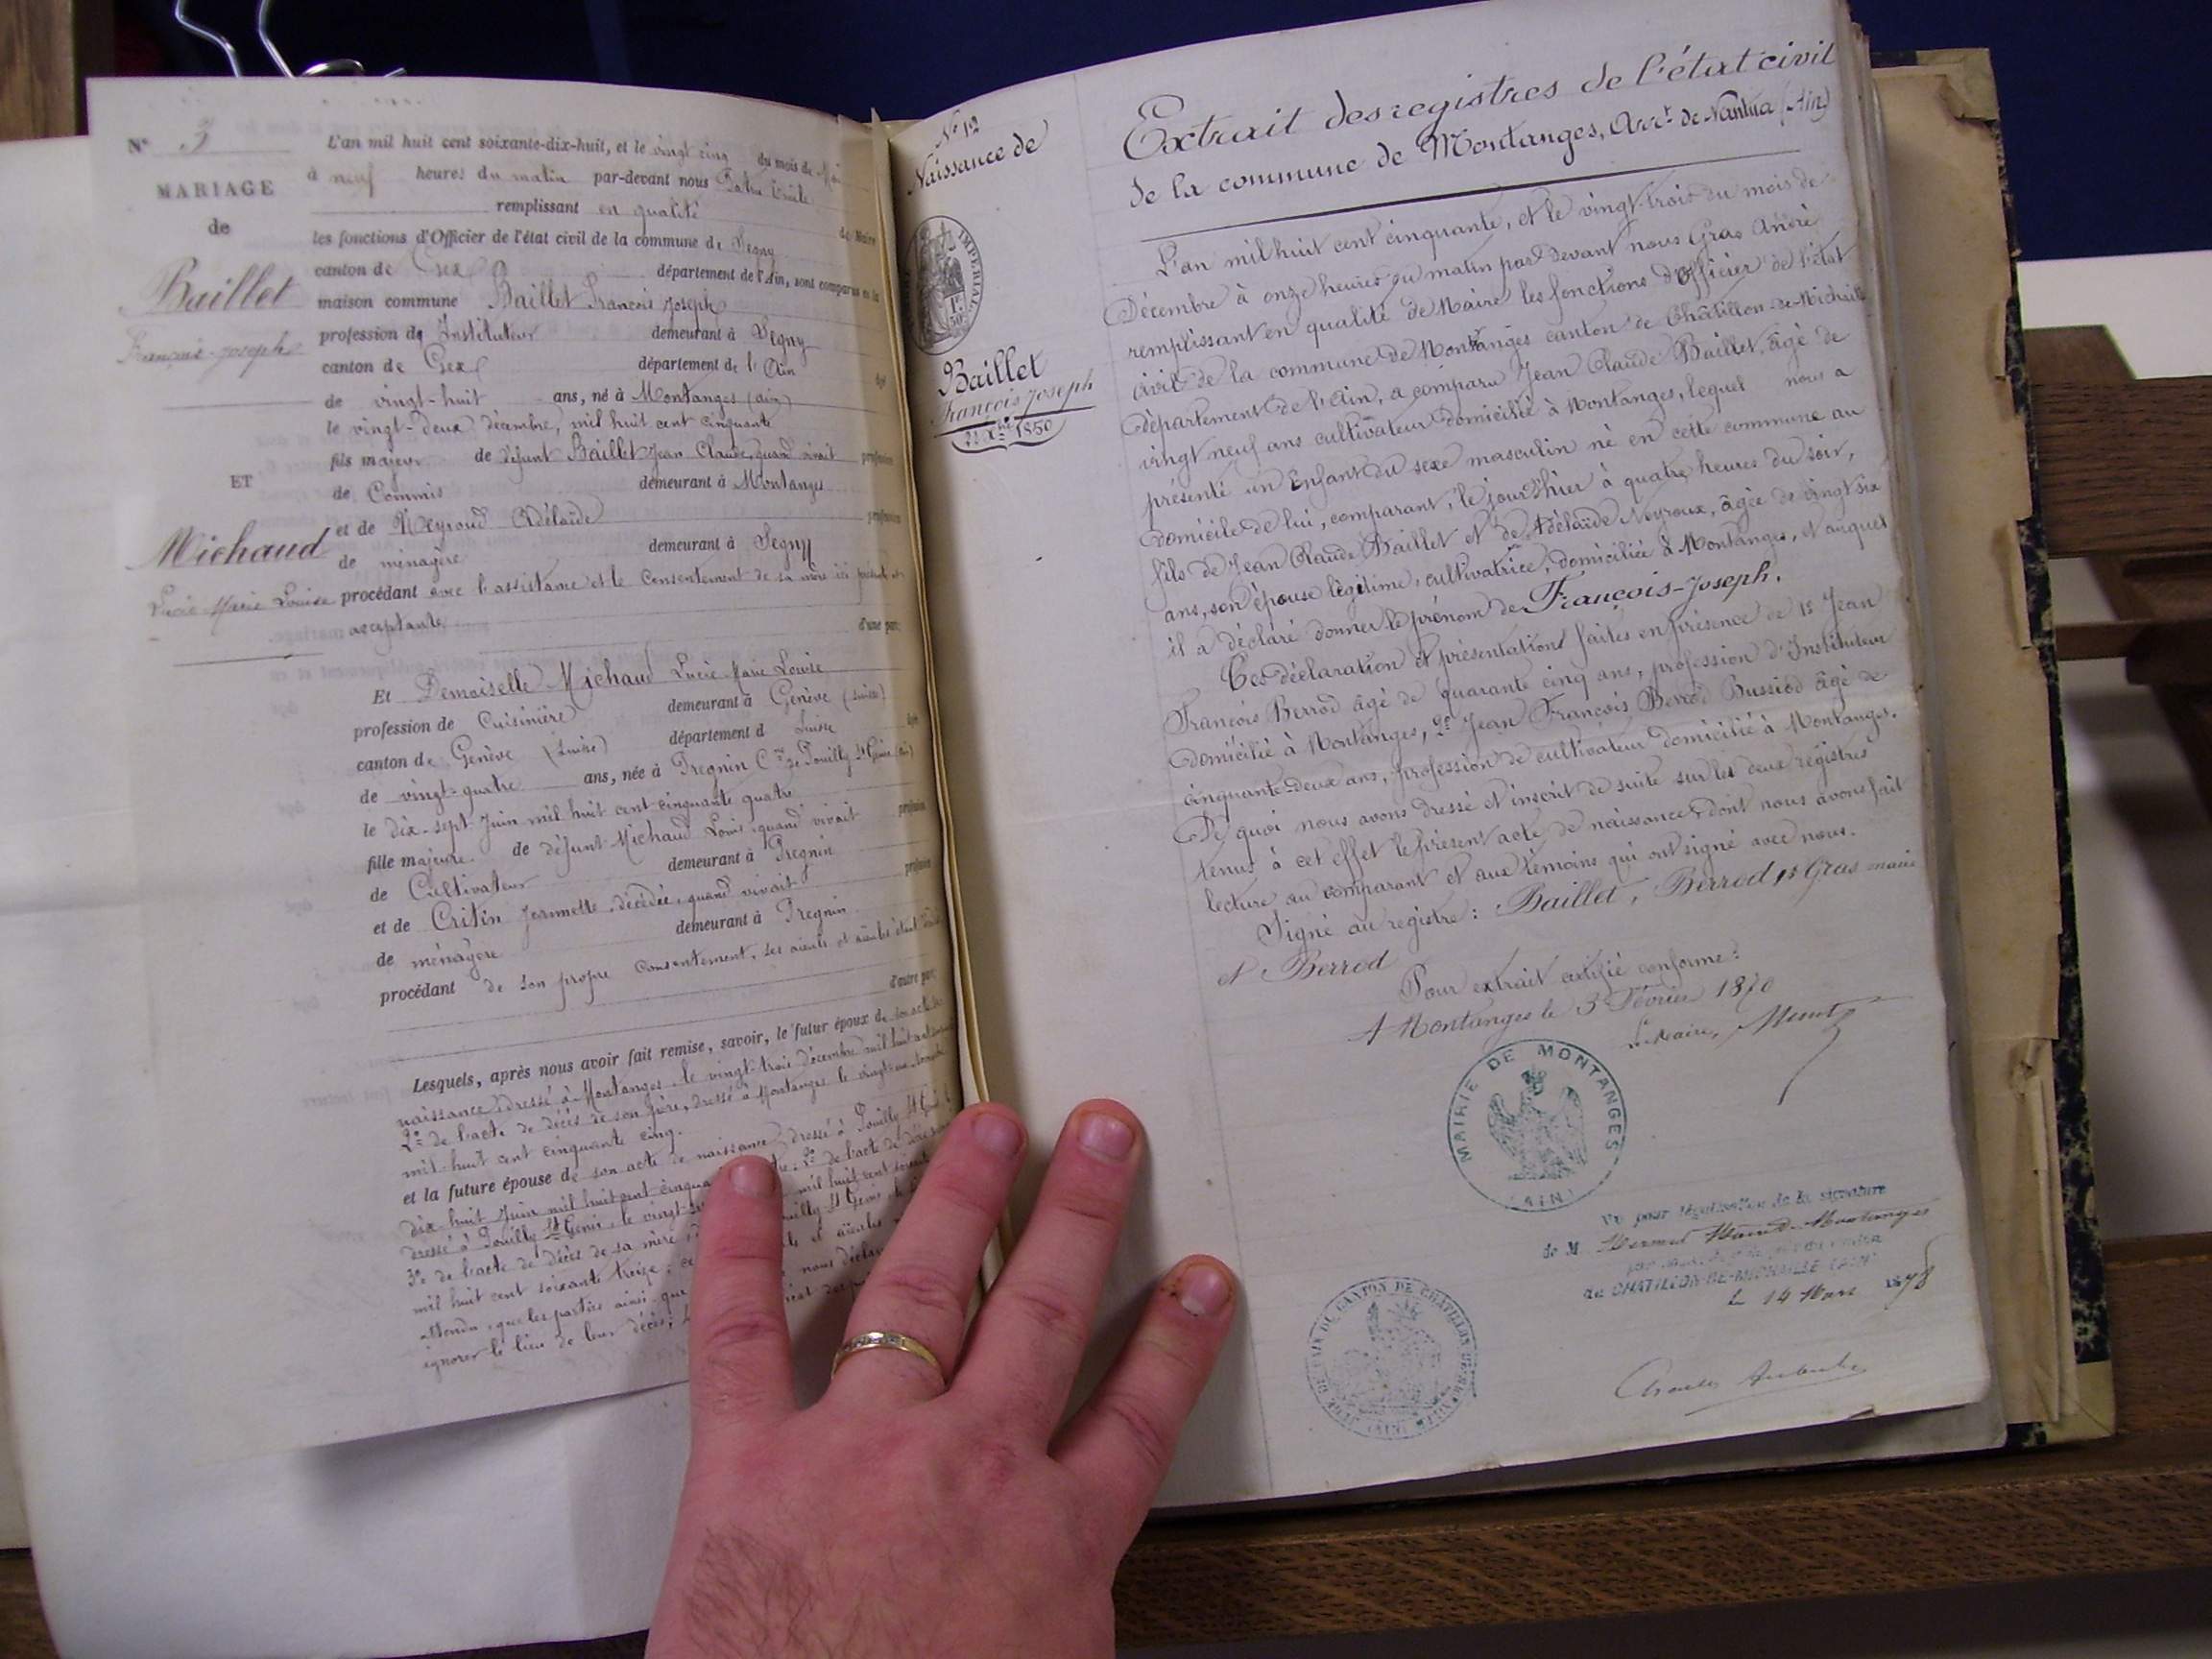 N° 3
MARIAGE
de
Baillet
François-Joseph
ET
Michaud
Lucie Marie Louise
L'an mil huit cent soixante-dix-huit, et le vingt cinq du mois de
à neuf heures du matin par-devant nous
remplissant en qualité de Maire
les fonctions d'Officier de l'état civil de la commune de Segny
canton de Gex département de l'Ain, sont comparus en la
maison commune Baillet François Joseph
profession de Instituteur demeurant à Segny
canton de Gex département de l'Ain âgé
de vingt-huit ans, né à Montanges (ain)
le vingt-deux décembre, mil huit cent cinquante
fils majeur de défunt Baillet Jean Claude, quand vivait profession
de Commis demeurant à Montanges
et de Neyroud Adélaïde profession
de ménagère demeurant à Segny
procédant avec l'assistance et le consentement de sa mère ici présente et
acceptante d'une part
Et Demoiselle Michaud Lucie Marie Louise
profession de Cuisinière demeurant à Genève (Suisse)
canton de Genève (Suisse) département d Suisse âgée
de vingt-quatre ans, née à Pregnin Cne de Pouilly St Genis (ain)
le dix-sept Juin mil huit cent cinquante quatre
fille majeure de défunt Michaud Louis, quand vivait profession
de Cultivateur demeurant à Pregnin
et de Critin Jeannette, décédée, quand vivait profession
de ménagère demeurant à Pregnin
procédant de son propre consentement, ses aïeuls et aïeules étant
d'autre part
Lesquels, après nous avoir fait remise, savoir, le futur époux de son acte de
naissance dressé à Montanges, le vingt-trois décembre mil huit cent
2° de l'acte de décès de son père, dressé à Montanges le
mil huit cent cinquante cinq.
et la future épouse de son acte de naissance dressé à Pouilly St Genis le
dix huit Juin mil huit cent cinquante 2° de l'acte de décès
dressé à Pouilly St Genis, le vingt mil huit cent soixante
3° de l'acte de décès de sa mère Pouilly St Genis le
mil huit cent soixante treize; et aïeules
attendu, que les parties ainsi que nous déclar
ignorer le lieu de leur décès;
N° 12
Naissance de
IMPERIAL
1F 50c
Baillet
François Joseph
22 Xbre 1850
Extrait des registres de l'état civil
de la commune de Montanges, Arrt de Nantua (Ain)
L'an mil huit cent cinquante, et le vingt-trois du mois de
Décembre à onze heures du matin par devant nous Gras André
remplissant en qualité de Maire les fonctions d'Officier de l'état
civil de la commune de Montanges canton de Châtillon-de-Michaille
Département de l'Ain, a comparu Jean Claude Baillet, âgé de
vingt neuf ans cultivateur domicilié à Montanges, lequel nous a
présenté un Enfant du sexe masculin né en cette commune au
domicile de lui, comparant, le jour d'hier à quatre heures du soir,
fils de Jean Claude Baillet et de Adélaïde Neyroux, âgée de vingt six
ans, son épouse légitime, cultivatrice, domiciliée à Montanges, et auquel
il a déclaré donner le prénom de François-Joseph.
Ces déclaration et présentation faites en présence de 1° Jean
François Berrod âgé de quarante cinq ans, profession d'Instituteur
domicilié à Montanges, 2° Jean François Berrod Bussiod âgé de
cinquante deux ans, profession de cultivateur domicilié à Montanges.
De quoi nous avons dressé et inscrit de suite sur les deux registres
tenus à cet effet le présent acte de naissance dont nous avons fait
lecture au comparant et aux témoins qui ont signé avec nous.
Signé au registre: Baillet, Berrod, Gras maire
et Berrod
Pour extrait certifié conforme:
A Montanges le 3 Février 1870
Le Maire,
MAIRIE DE MONTANGES
(AIN)
Vu pour légalisation de la signature
de M. Montanges
de CHATILLON-DE-MICHAILLE (AIN)
le 14 Mars 1878